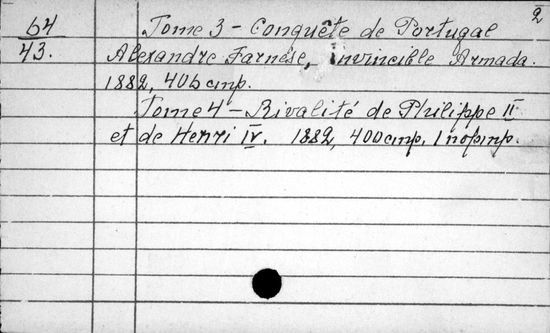 2
64 Tome 3 - Conquête de Portugal
43. Alexandre Farnèse, invincible Armada.
1882, 406 стр.
Tome 4 - Rivalité de Philippe II
et de Henri IV. 1882, 400 стр, 1 портр.